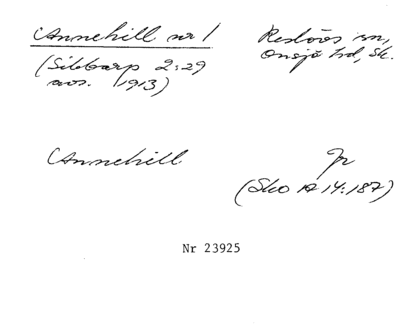 Annehill nr 1
Reslövs sn,
Onsjö hd, Sk.
(Sibbarp 2:29
avs. 1913)
Annehill
Jr
(Sko A 14:187)
Nr 23925